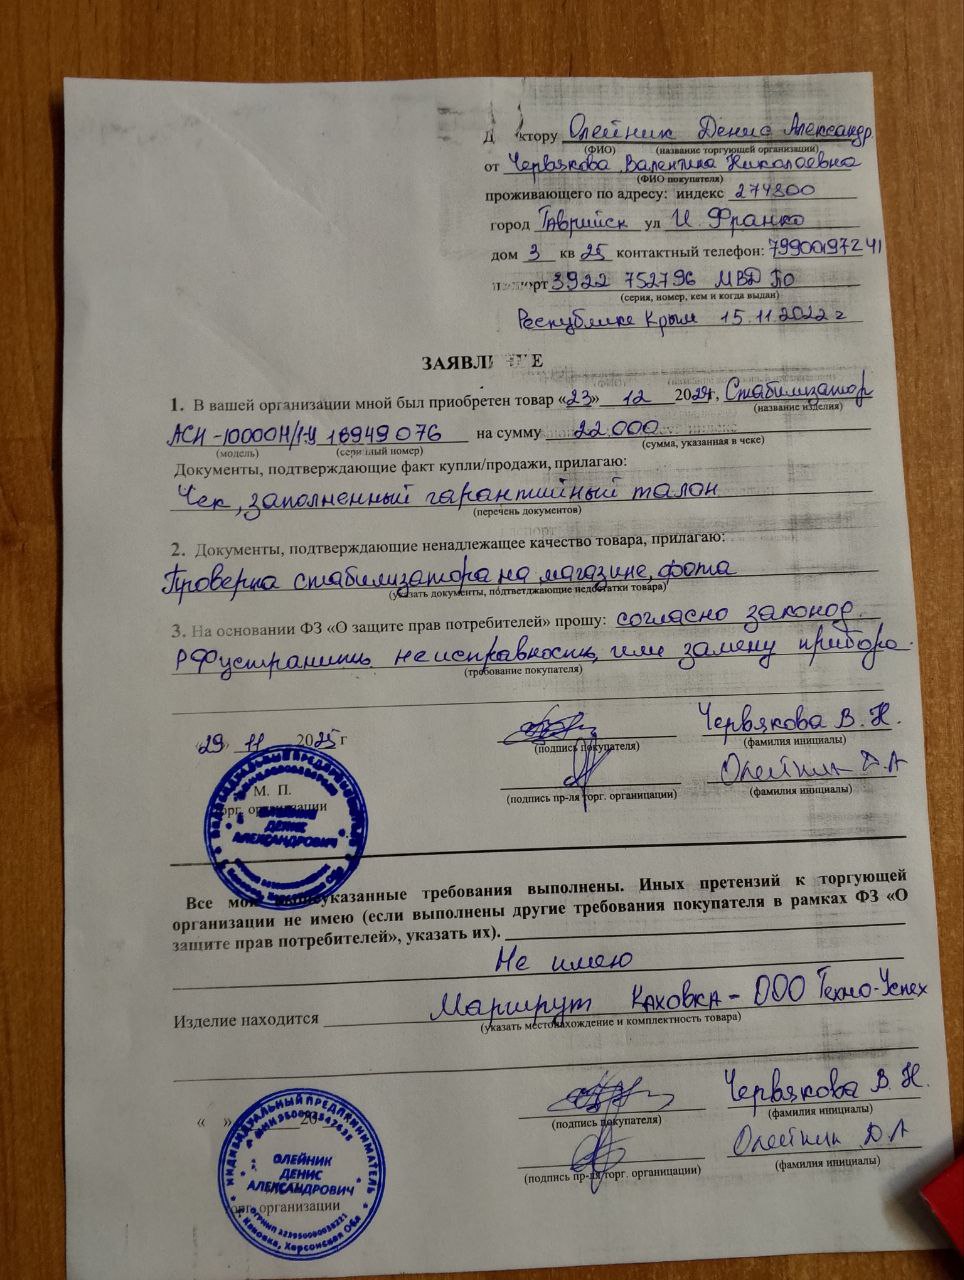 Д ктору Олейник Денис Александр.
(ФИО) (название торгующей организации)
от Червякова Валентина Николаевна
(ФИО покупателя)
проживающего по адресу: индекс 274800
город Таврийск ул И. Франко
дом 3 кв 25 контактный телефон: 79900197241
порт 3922 752796 МВД По
(серия, номер, кем и когда выдан)
Республике Крым 15.11.2022 г
ЗАЯВЛ Е
1. В вашей организации мной был приобретен товар «23» 12 2024г, Стабилизатор
(название изделия)
АСН-10000Н/1-Ц 18949076 на сумму 22.000
(модель) (сери ный номер) (сумма, указанная в чеке)
Документы, подтверждающие факт купли/продажи, прилагаю:
Чек, заполненный гарантийный талон
(перечень документов)
2. Документы, подтверждающие ненадлежащее качество товара, прилагаю:
Проверка стабилизатора на магазине, фота
(указать документы, подтветджающие недостатки товара)
3. На основании ФЗ «О защите прав потребителей» прошу: согласно законод.
РФ устранить неисправность, или замену прибора.
(требование покупателя)
«29» 11 2025 г Червякова В. Н.
(подпись покупателя) (фамилия инициалы)
Олейник Д.А
(подпись пр-ля торг. органицации) (фамилия инициалы)
М. П.
торг. организации
ДЕНИС
АЛЕКСАНДРОВИЧ
Все мои вышеуказанные требования выполнены. Иных претензий к торгующей
организации не имею (если выполнены другие требования покупателя в рамках ФЗ «О
защите прав потребителей», указать их).
Не имею
Изделие находится Маршрут Каховка - ООО Техно-Успех
(указать местонахождение и комплектность товара)
Червякова В. Н.
(подпись покупателя) (фамилия инициалы)
« » 20
Олейник Д.А
(подпись пр-ля торг. органицации) (фамилия инициалы)
ИНДИВИДУАЛЬНЫЙ ПРЕДПРИНИМАТЕЛЬ
ОЛЕЙНИК
ДЕНИС
АЛЕКСАНДРОВИЧ
г. Каховка, Херсонская Обл
торг. организации